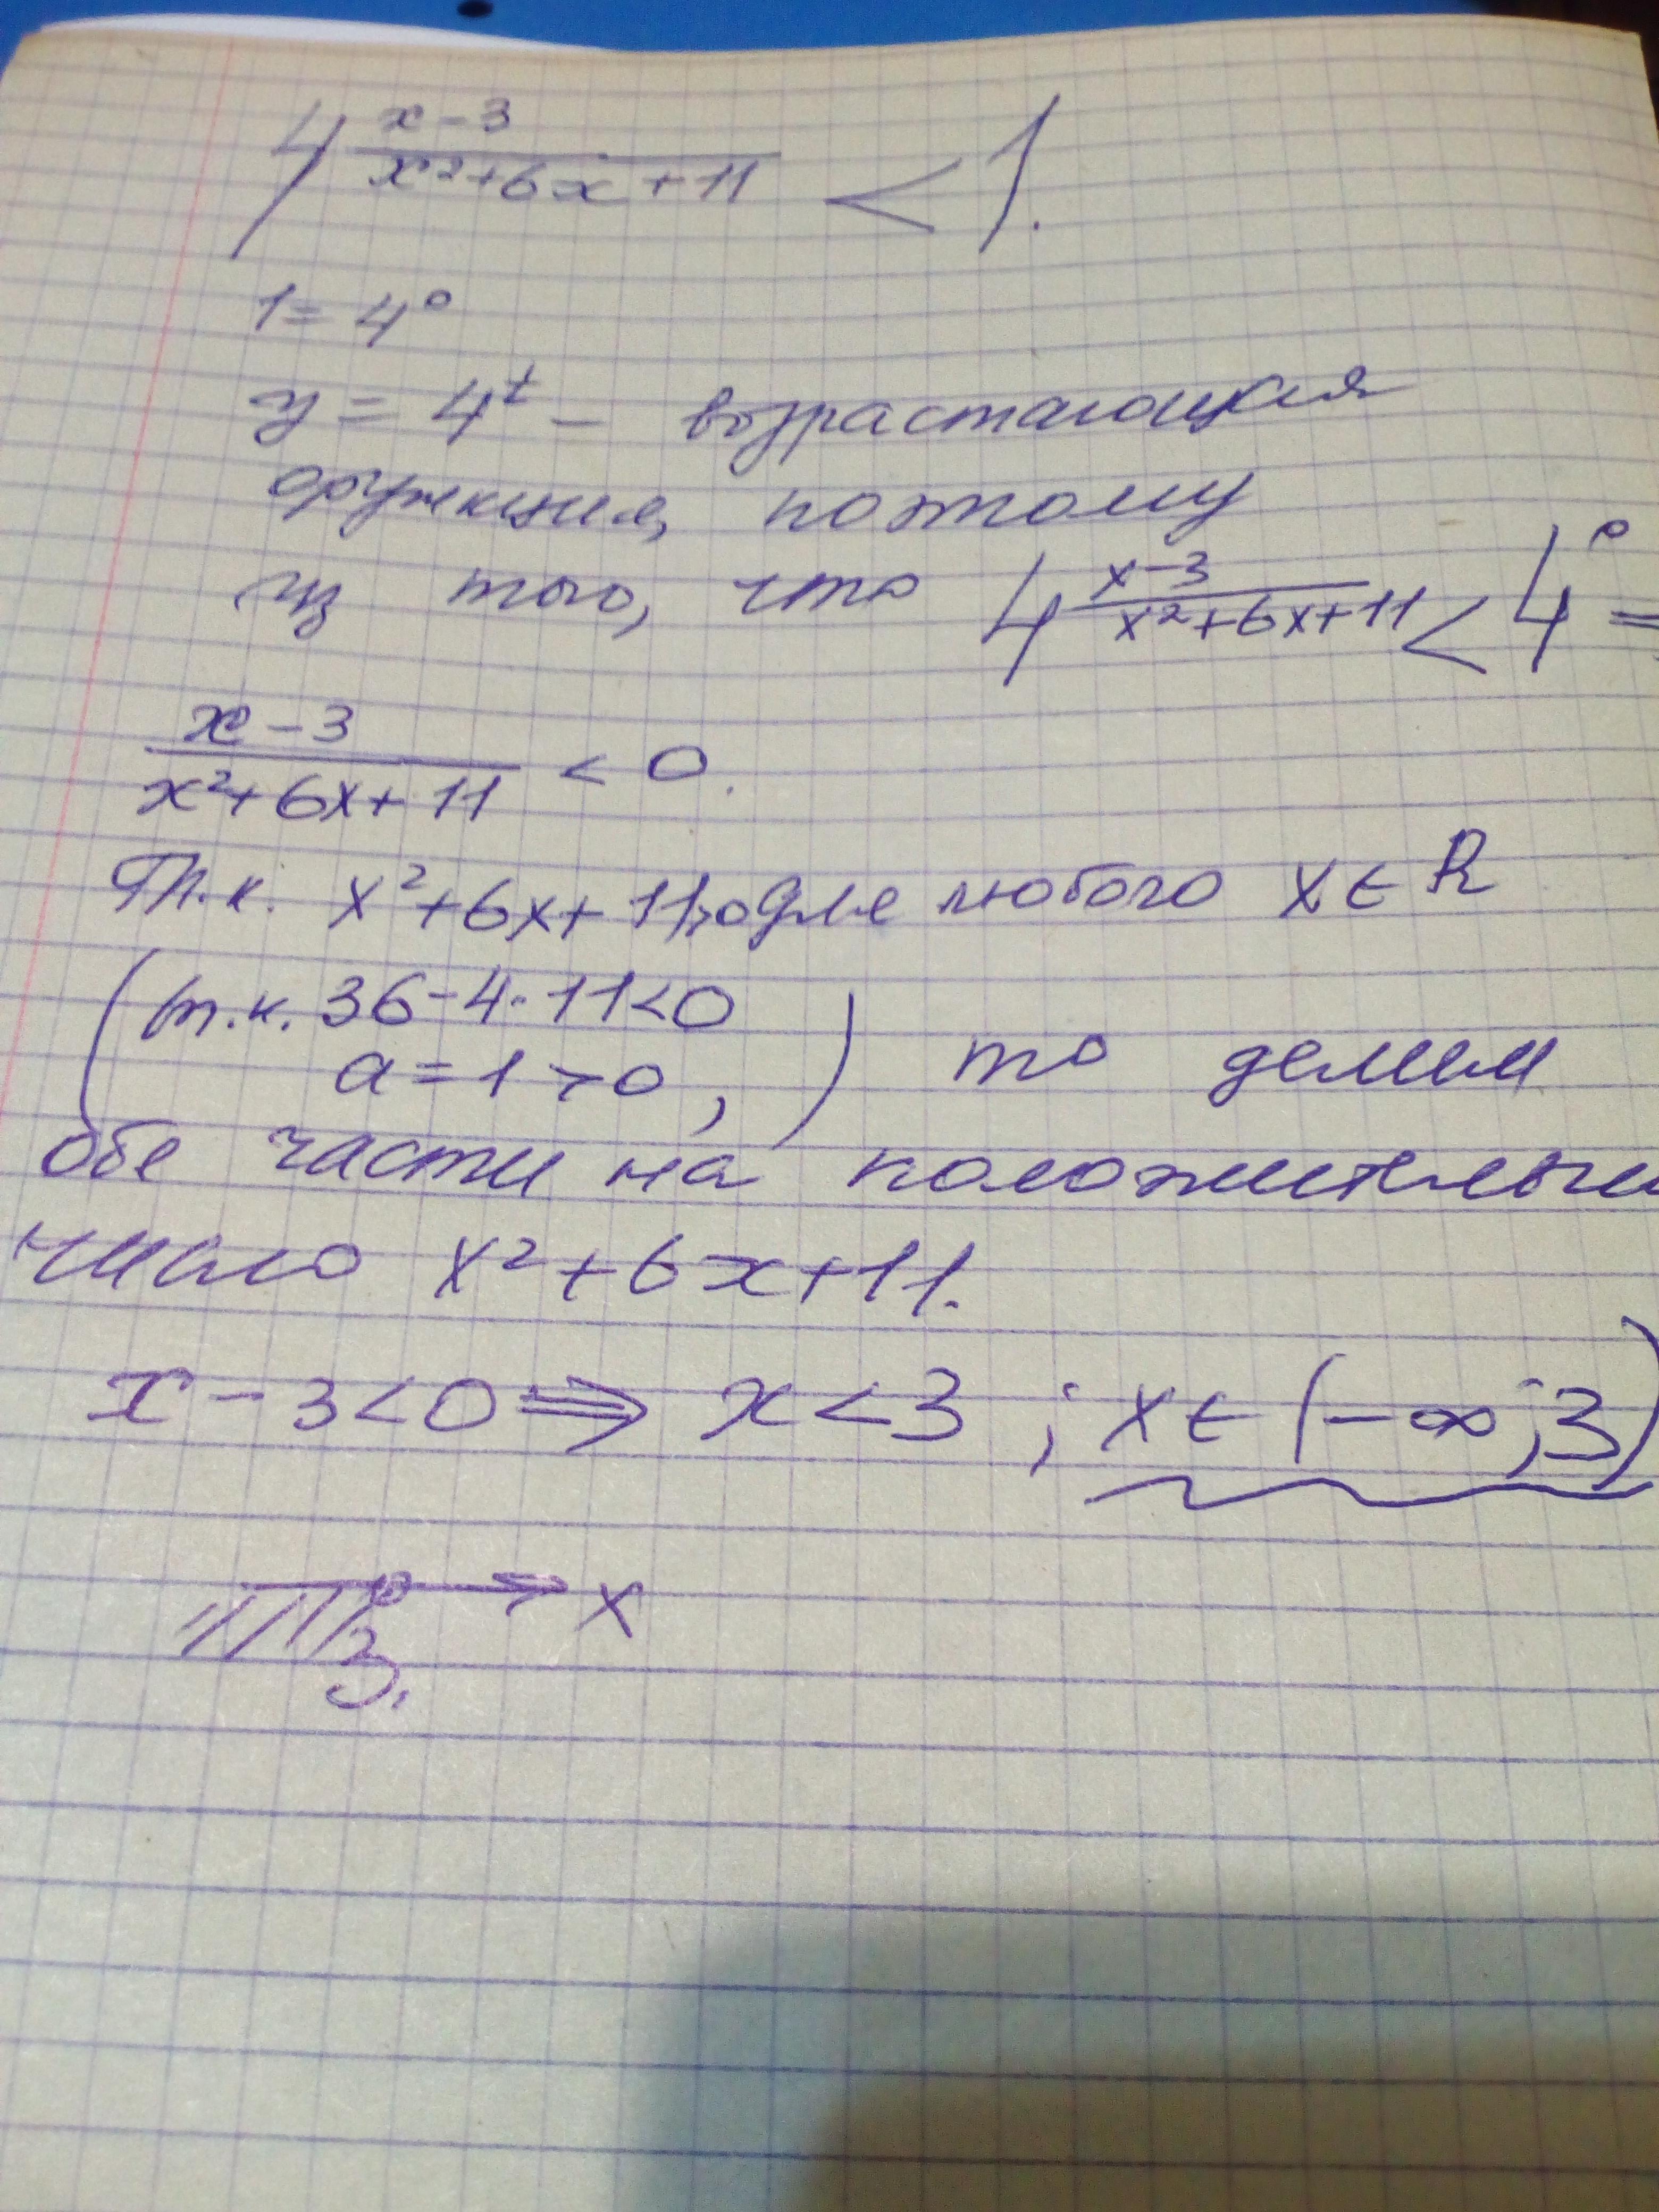 4^((x-3)/(x²+6x+11)) < 1.
1 = 4⁰
y = 4ᵗ — возрастающая
функция, поэтому
из того, что 4^((x-3)/(x²+6x+11)) < 4⁰ =
(x-3)/(x²+6x+11) < 0.
Т.к. x²+6x+11>0 для любого x∈R
(т.к. 36-4·11<0
a=1>0, ) то делим
обе части на положительн
число x²+6x+11.
x-3<0 ⟹ x<3 ; x∈(-∞;3)
x
3.